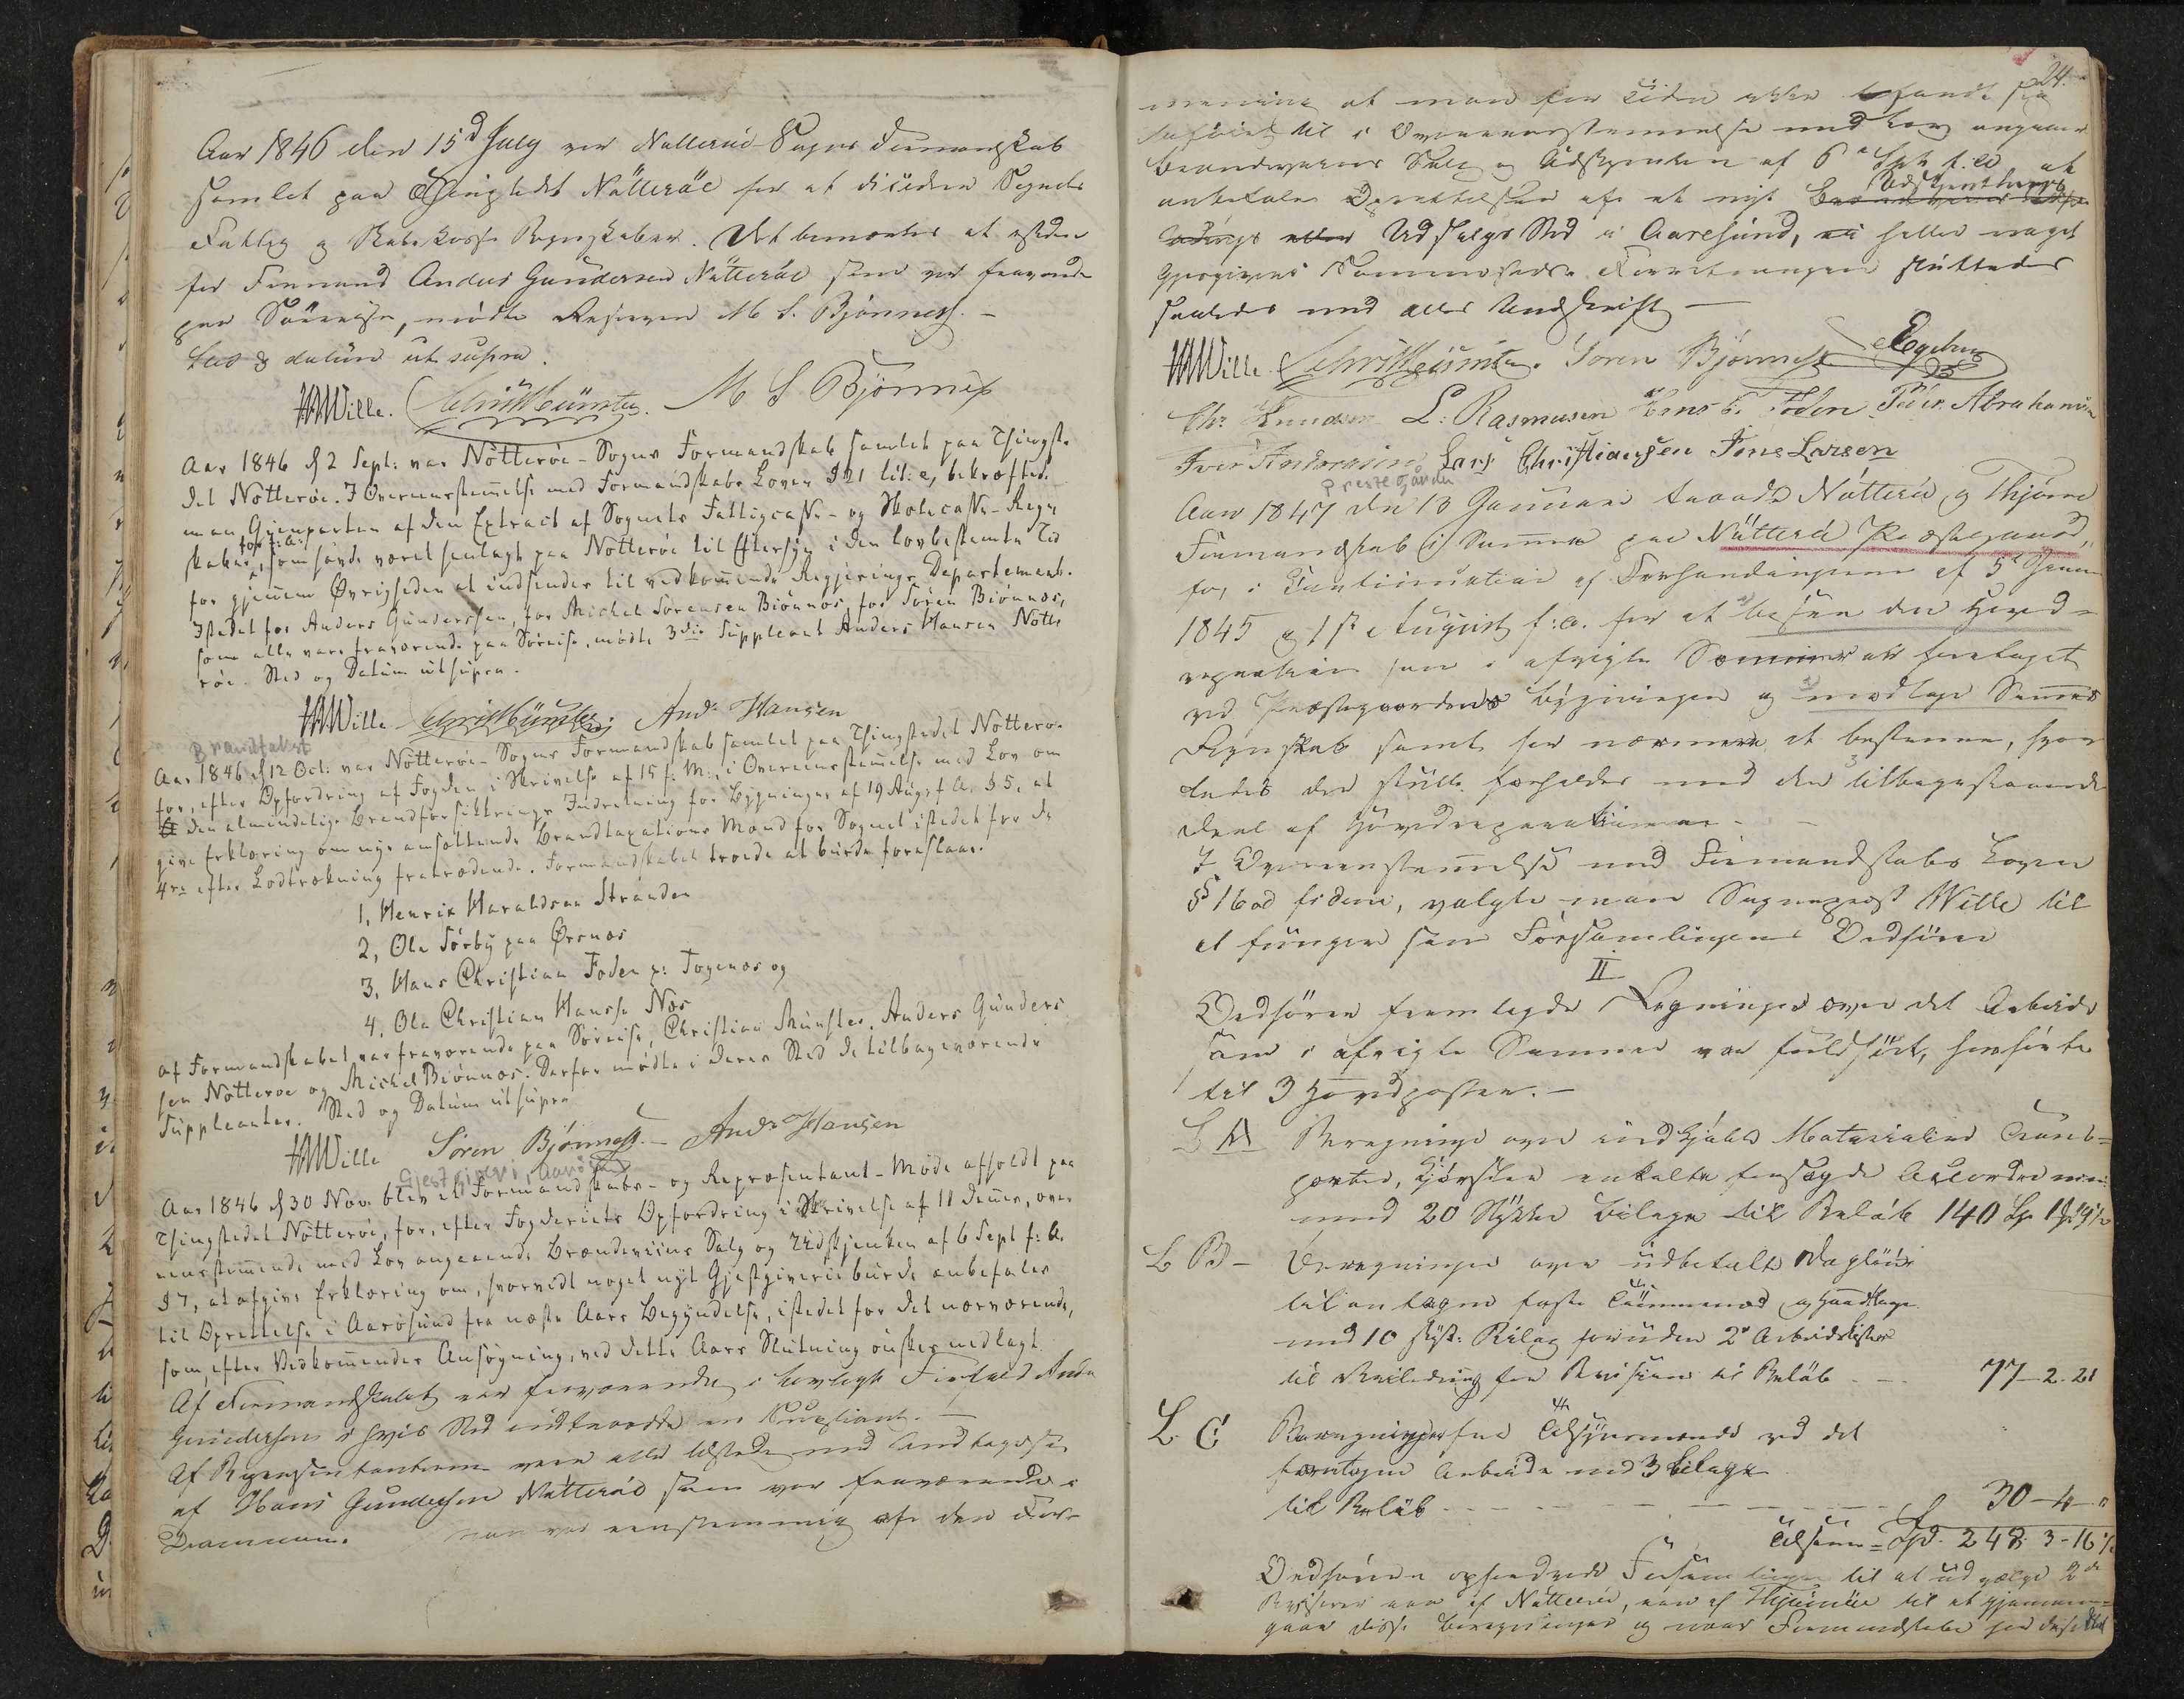 Aar 1846 den 15d July var Nøtterøe Sogns Formandskab
samlet paa Thingstedet Nøtterøe for at decidere Sognets
Fattig og Skolekasse Regnskaber. Det bemærkes at isteden
for Formand Anders Gundersen Nøtterøe som var fraværende
paa Søereise, mødte Reserven M. S. Bjønnes. -
Sted & datum ut supra.
HJWille. Chr Münster. M S Bjønnes
Aar 1846 d 2 Sept: var Nøtterøe-Sogns Formandskab samlet paa Thingste-
det Nøtterøe. I Overeensstemmelse med Formandskabs Loven § 21 lit: e, bekræftede
man Gjenparten af den Extract af Sognets Fattigcasse- og Skolecasse-Regn-
skaber for f: A:, som havde været henlagt paa Nøtterøe til Eftersyn i den lovbestemte Tid
for gjennem Øvrigheden at indsendes til vedkommende Regjerings Departement.
Istedet for Anders Gundersen, for Michel Sørensen Biønnæs, for Søren Biønnæs,
som alle vare fraværende paa Søreise, mødte 3die Suppleant Anders Hansen Nøtte-
røe. Sted og Datum ut supra.
HJWille Chr Münster And: Hansen
Brandtakst
Aar 1846 d 12 Oct: var Nøtterøe-Sogns Formandskab samlet paa Thingstedet Nøtterø-
for, efter Opfordring af Fogden, i Skrivelse af 15 f: M:, i Overeensstemmelse med Lov om
den almindelige Brandforsikkrings Indretning for Bygninger af 19 Aug: f A. § 5, at
give Erklæring om nye ansættende Brandtaxations Mænd for Sognet istedet for de
4re efter Lodtrækning fratrædende. Formandskabet troede at burde foreslaae:
1, Henrik Haraldsen Stranden
2, Ole Sørby paa Ørsnæs
3, Hans Christian Foden p: Togenæs og
4, Ole Christian Hansen Næs
af Formandskabet var fraværende paa Søreise, Christian Münster, Anders Gunders
sen Nøtterøe og Michel Biønnæs. Derfor mødte i deres Sted de tilbageværende
Suppleanter. Sted og Datum ut supra
HJWille Søren Bjønnes. - And: Hansen
Gjestgiveri, Aarøsund
Aar 1846 d 30 Nov. blev et Formandskabs- og Repræsentant-Møde afholdt paa
Thingstedet Nøtterøe, for, efter Fogderiets Opfordring i Skrivelse af 11 dennes, over
eensstemmende med Lov angaaende Brændeviins Salg og Udskjenken af 6 Sept f: A.
§ 7, at afgive Erklæring om, hvorvidt noget nyt Gjestgiverie burde anbefales
til Oprettelse i Aarøsund fra næste Aars Begyndelse, istedet for det nærværende,
som, efter Vedkommendes Ansøgning, ved dette Aars Slutning ønskes nedlagt.
Af Formandskabet var fraværende i lovligt Forfald Anders
Gundersen i hvis Sted indtraadte en Supliant. -
Af Repræsentanterne vare alle tilstede med Undtagelse
af Hans Gundersen Nøtterøe som var fraværende i
Drammen. Man var eenstemmig af den For-
24.
mening at man for Tiden ikke befandt sig
beføiet til i Overeensstemmelse med Lov angaaende
Brændeviins Salg og Udskjenken af 6 Sept f: A. at
anbefale Oprettelsen af et nyt Udskjenknings
eller Udsalgs Sted i Aarøsund, ei heller noget
Forretningen sluttedes
saaledes med alles Underskrift -
HJWille. Chr Münster. Søren Bjønnes Engebret
Chr. Knudsen L: Rasmusen Hans C. Foden Peder Abrahamsen
Iver Andersen Lars Christiansen Jens Larsen
Prestegården
Aar 1847 den 13 Januari traadte Nøtterø og Thjømø
Formandskab i Sammen paa Nøtterø Præstegaard,
for, i Continuation af Forhandlingerne af 5t Janu
1845 og 1st August f: a. for at besee den Hoved-
reparation som i afvigte Sommer er foretaget
ved Præstegaardens Bygninger og modtage Sammes
Regnskab samt for nærmere at bestemme, hvor
ledes der skulle forholdes med den tilbagestaaende
Deel af Hovedreparationen -
I Overeensstemmelse med Formandskabs Loven
§ 16 ad fidem, valgte man Sognepræst Wille til
at fungere som Forsamlingens Ordfører
II
Ordføreren fremlagde Regninger over det Arbeide
som i afvigte Sommer var fuldført, henførte
til 3 Hovedposter. -
L A Beregninge over indkjøbte Materialier Trans-
porter, Kjørsler enkelte forsøgte Accorder m.m:
med 20 Stykker Bilage til Beløb 140
L B - Beregninge over udbetalt Dagløn
til antagne faste Tømmermænd og Haandlangere
med 10 styk: Bilag foruden 2 Arbeidslister
til Veiledning for Revisionen til Beløb - - 77-2-21
L. C Beregninger for Tilsynsmænd ved det
foretagne Arbeide med 3 Bilage
til Beløb - - - - - - 30-4-"
Tilsamm = Spd. 248. 3-16 ½
Ordføreren opfordrede Forsamlingen til at udvælge 2de
Revisorer een af Nøtterøe, een af Thjømøe til at gjennem-
gaae disse Beregninger og naar Formandskabet har